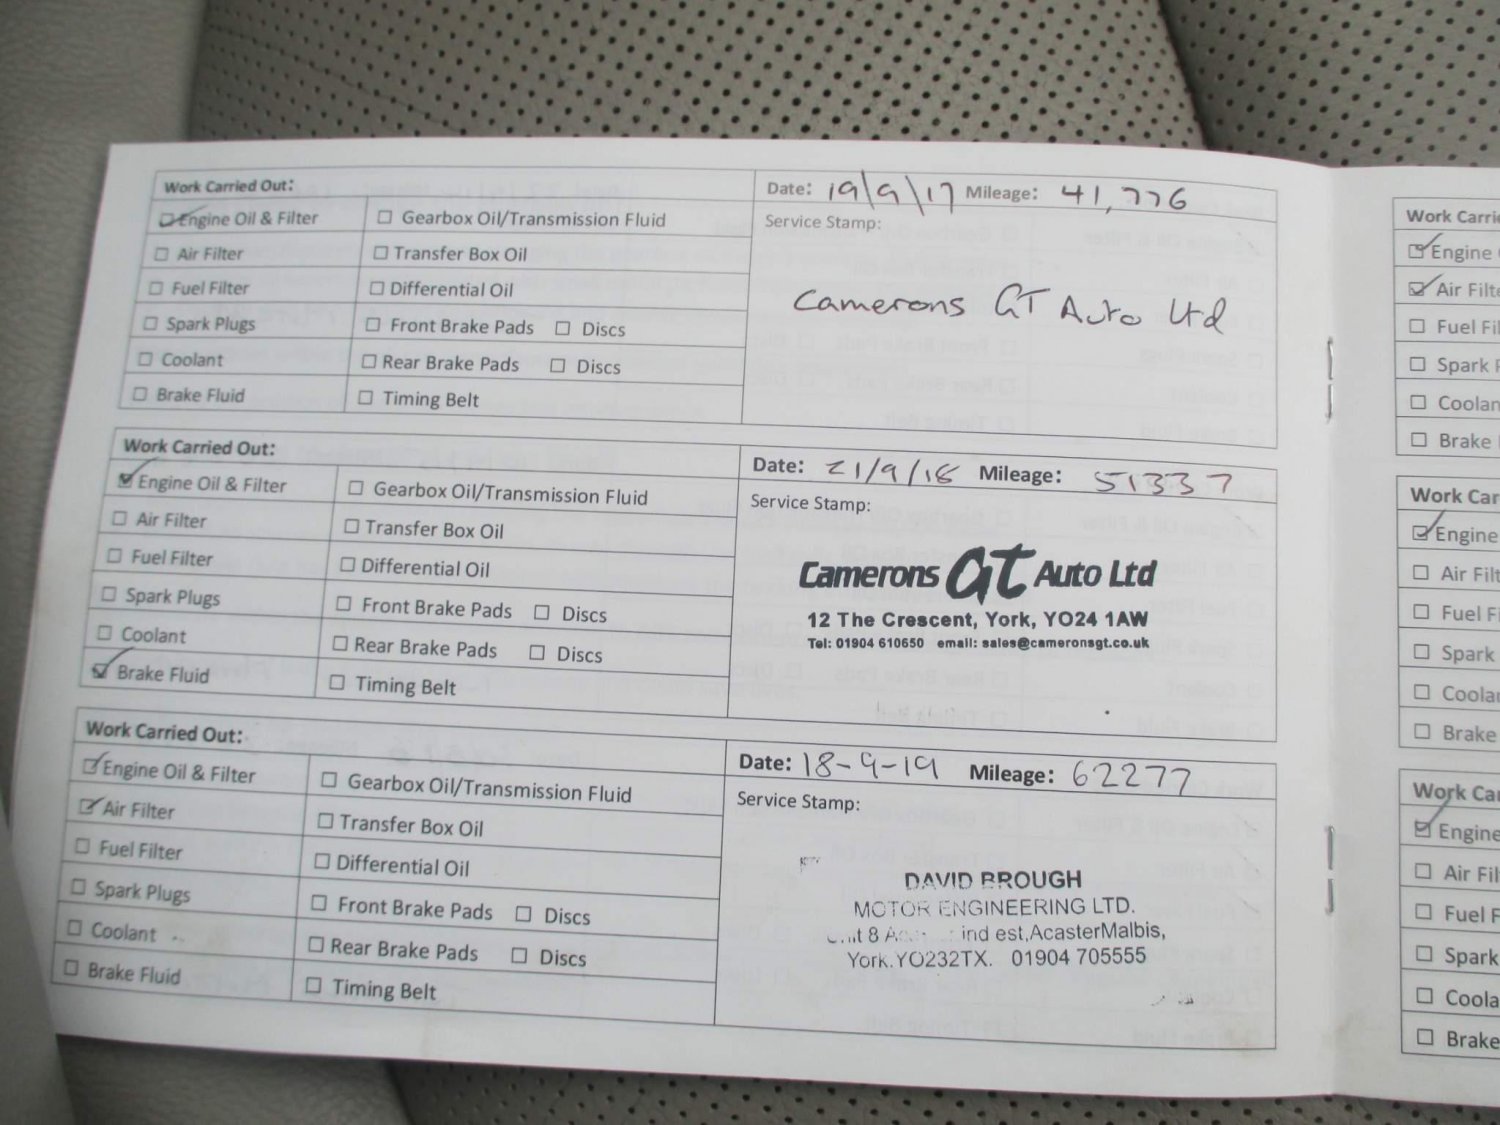 Work Carried Out:
Engine Oil & Filter
Gearbox Oil/Transmission Fluid
Air Filter
Transfer Box Oil
Fuel Filter
Differential Oil
Spark Plugs
Front Brake Pads Discs
Coolant
Rear Brake Pads Discs
Brake Fluid
Timing Belt
Date: 19/9/17 Mileage: 41,776
Service Stamp:
Camerons GT Auto Ltd
Work Carried Out:
Engine Oil & Filter
Gearbox Oil/Transmission Fluid
Air Filter
Transfer Box Oil
Fuel Filter
Differential Oil
Spark Plugs
Front Brake Pads Discs
Coolant
Rear Brake Pads Discs
Brake Fluid
Timing Belt
Date: 21/9/18 Mileage: 51337
Service Stamp:
Camerons GT Auto Ltd
12 The Crescent, York, YO24 1AW
Tel: 01904 610650 email: sales@cameronsgt.co.uk
Work Carried Out:
Engine Oil & Filter
Gearbox Oil/Transmission Fluid
Air Filter
Transfer Box Oil
Fuel Filter
Differential Oil
Spark Plugs
Front Brake Pads Discs
Coolant
Rear Brake Pads Discs
Brake Fluid
Timing Belt
Date: 18-9-19 Mileage: 62277
Service Stamp:
DAVID BROUGH
MOTOR ENGINEERING LTD.
8 ind est,AcasterMalbis,
York.YO232TX. 01904 705555
Work
Engine
Air
Fuel
Spark
Brake
Work
Engine
Air
Fuel
Spark
Brake
Work
Engine
Air
Fuel
Spark
Brake